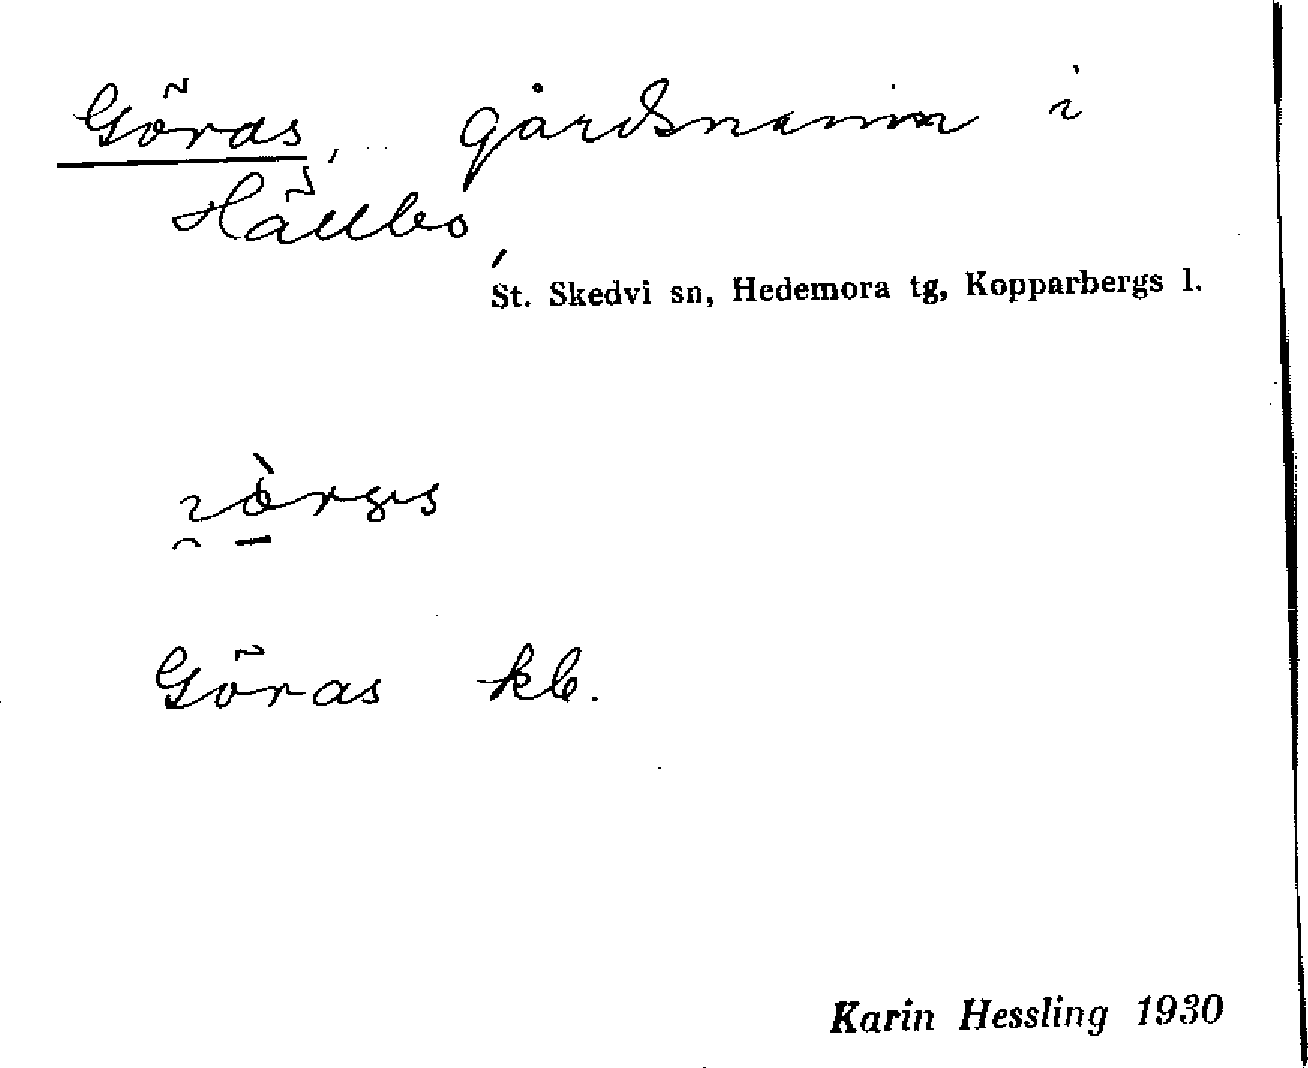 Göras, gårdsnamn i
Hällbo,
St. Skedvi sn, Hedemora tg, Kopparbergs l.
Göras kb.
Karin Hessling 1930